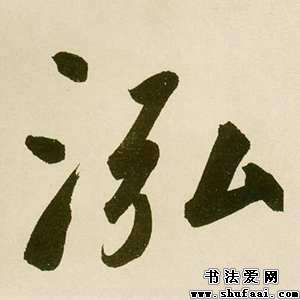 泓
书法爱网
www.shufaai.com